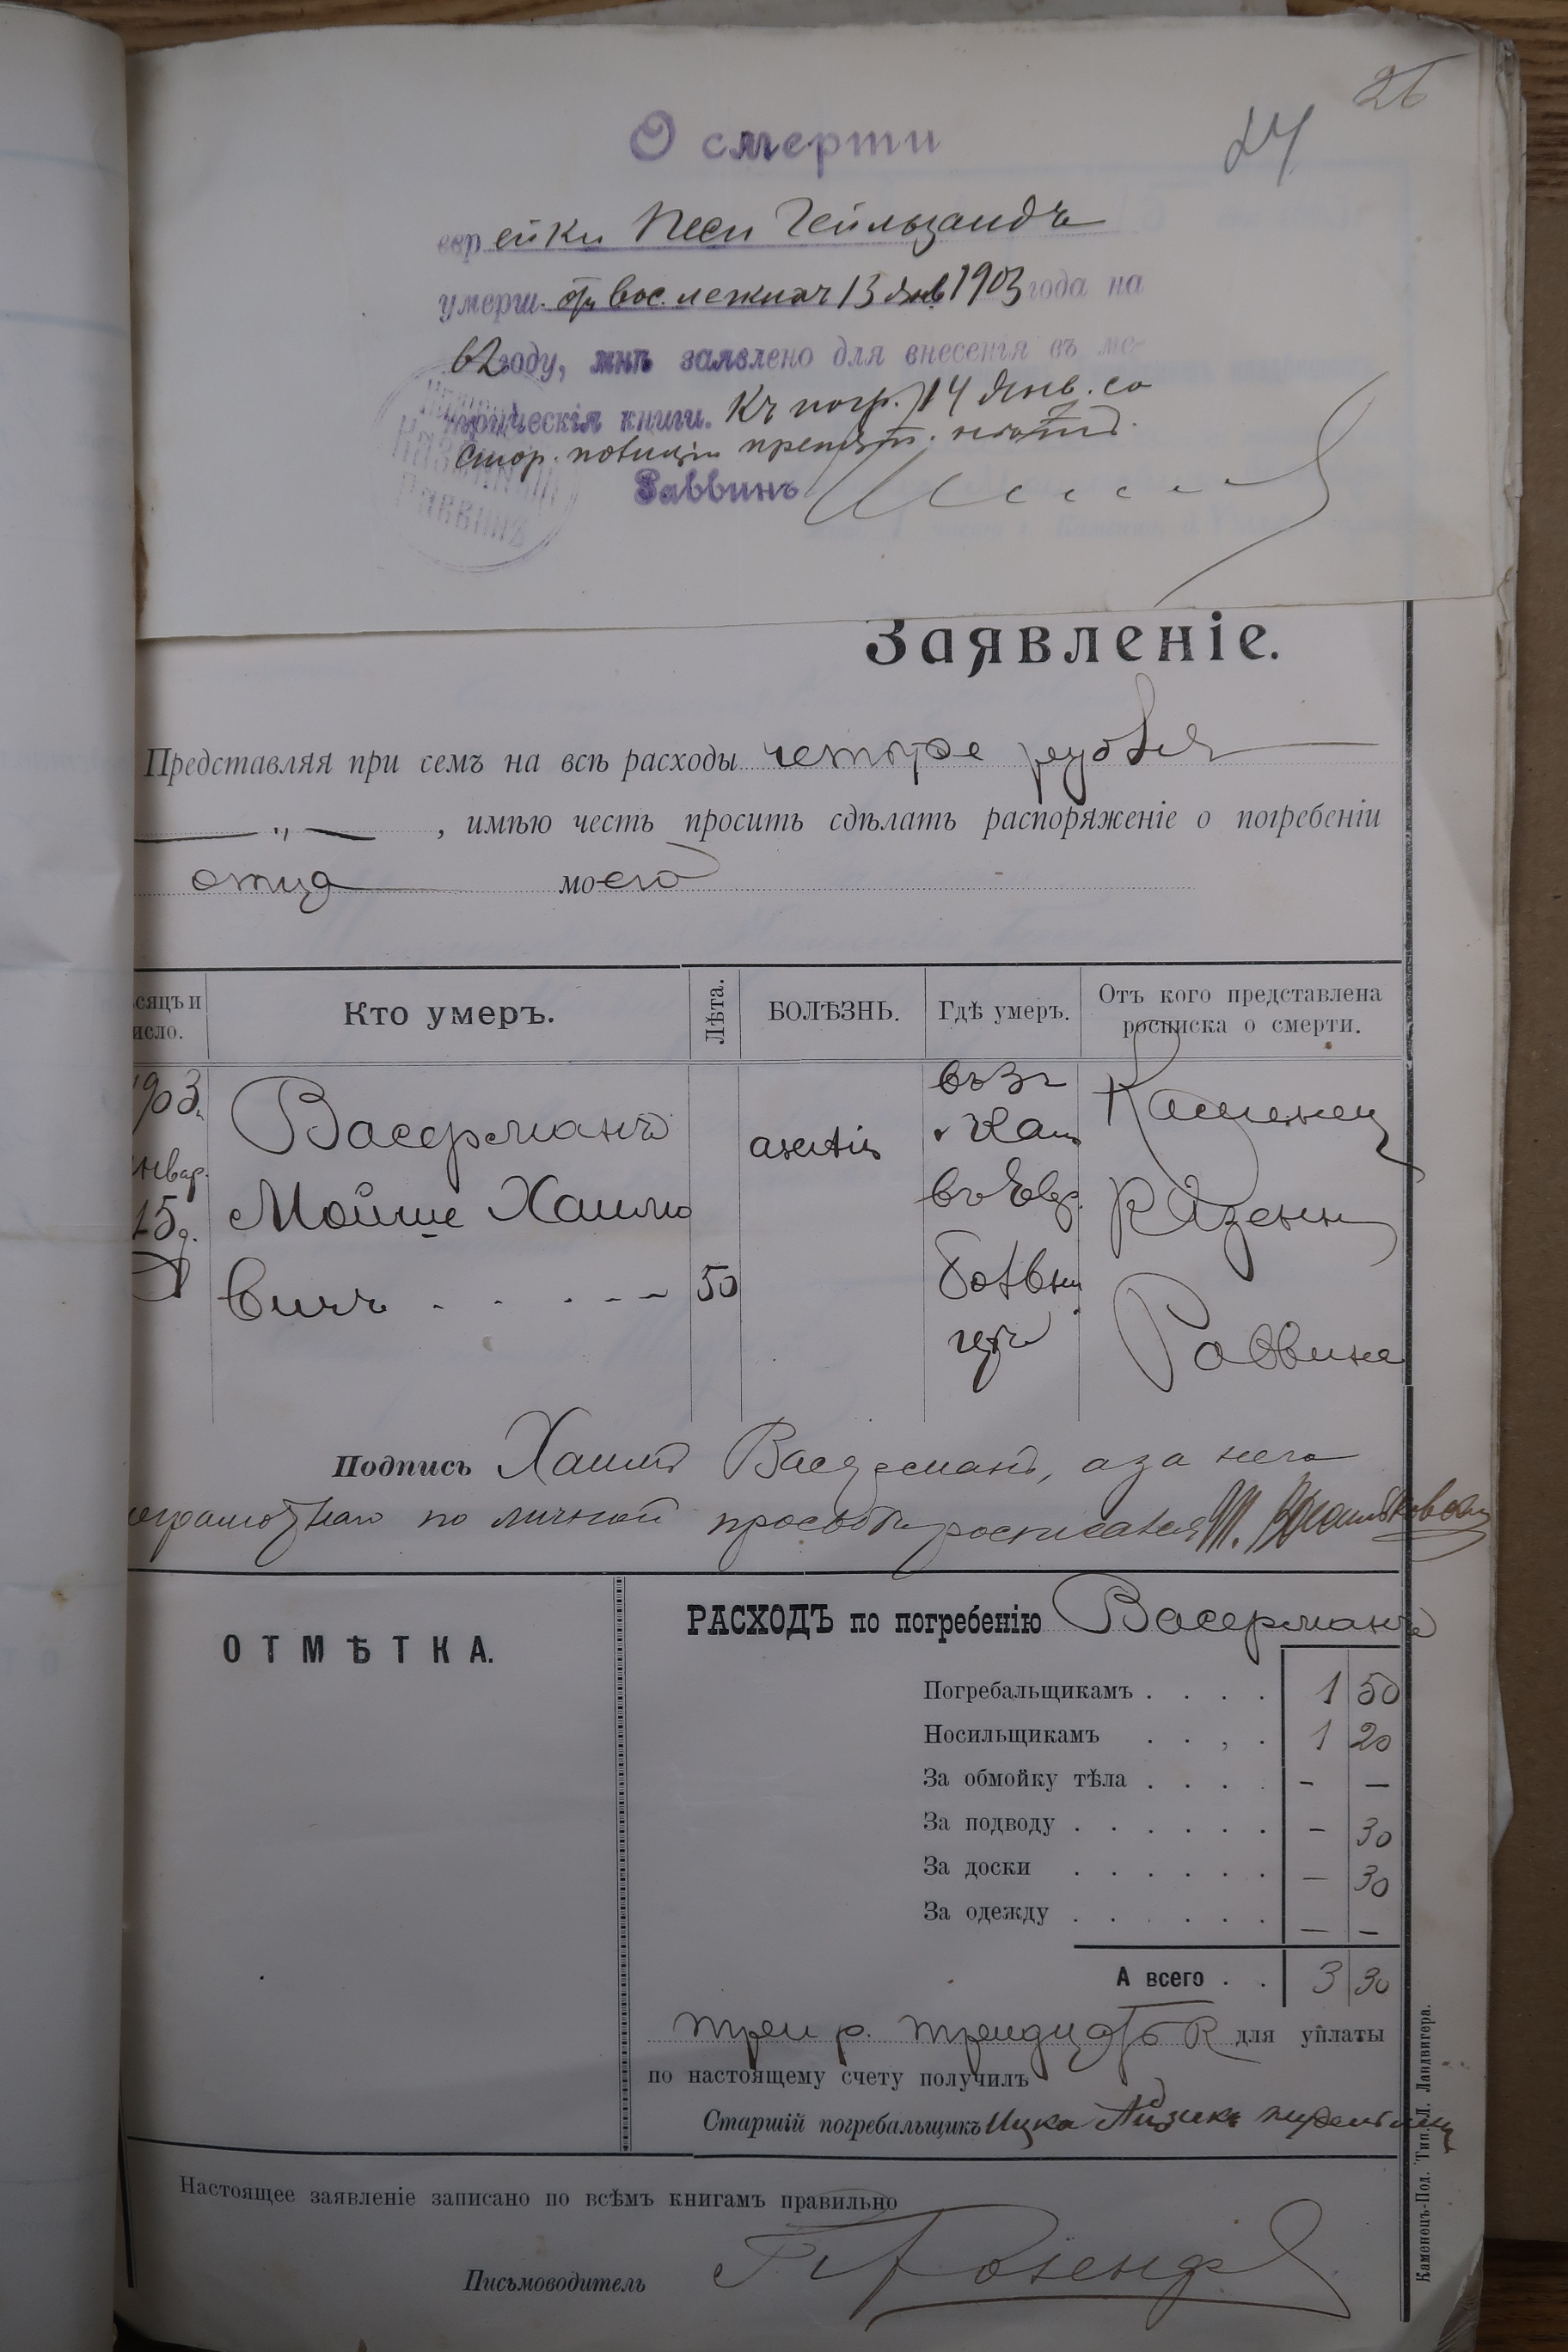 26
24
О смерти
еврейки Песи Гейльзандъ
умерш. отъ вос. легкихъ 13 Янв 1903 года на
62 году, мнѣ заявлено для внесенія въ ме-
трическія книги. Къ погр. 14 Янв. со
стор. полиціи препят. нѣтъ.
Раввинъ
КАЗЕННЫЙ
РАВВИНЪ
Заявленіе.
Представляя при семъ на всѣ расходы четыре рубля
„ , имѣю честь просить сдѣлать распоряженіе о погребеніи
отца моего
сяцъ и исло. Кто умеръ. Лѣта. БОЛѢЗНЬ. Гдѣ умеръ. Отъ кого представлена росписка о смерти.
1903. Васерманъ въ г. Кам Каменец
нвар. Мойше Хаимо въ Евр. Казенн
15 д. вичъ 50 больни Раввина
цѣ
Подпись Хаимъ Васерманъ, а за него
неграмотнаго по личной просьбѣ росписался
ОТМѢТКА.
РАСХОДЪ по погребенію Васерманъ
Погребальщикамъ . . . . 1 50
Носильщикамъ . . , . 1 20
За обмойку тѣла . . . . - —
За подводу . . . . . . - 30
За доски . . . . . . — 30
За одежду . . . . . . — —
А всего . . 3 30
три р. тридцать к для уплаты
по настоящему счету получилъ
Старшій погребальщикъ Ицко Айзикъ
Настоящее заявленіе записано по всѣмъ книгамъ правильно
Письмоводитель Розенф
Каменецъ-Под. Тип. Л. Ландвигера.